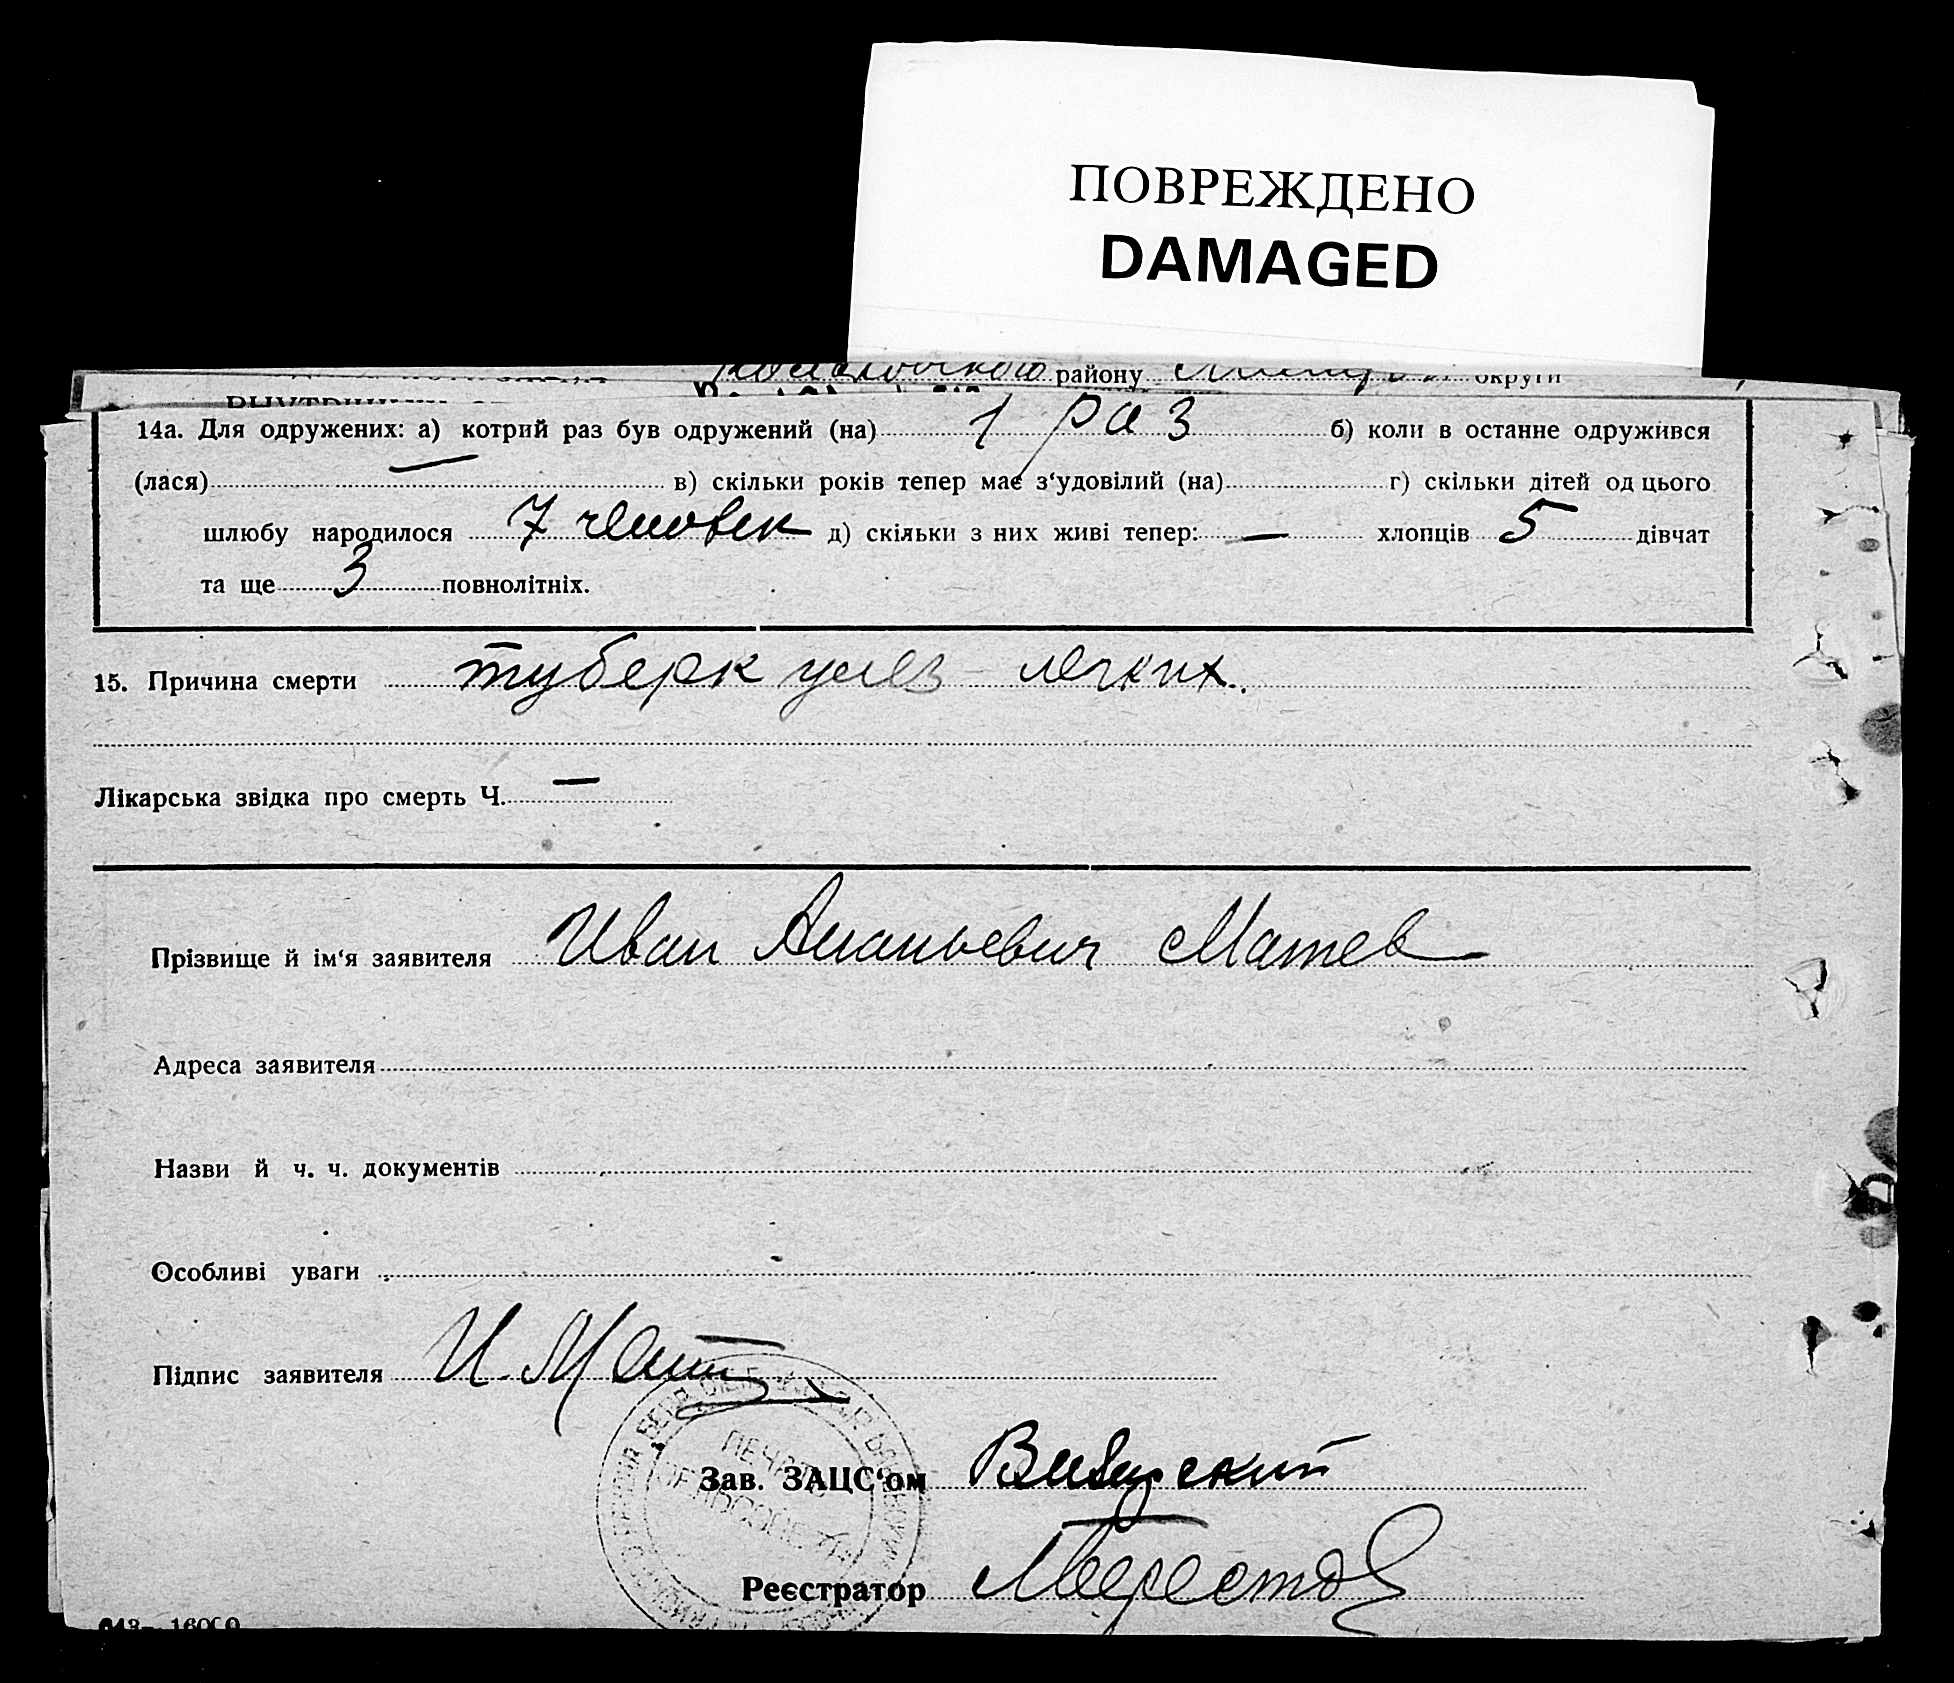 ПОВРЕЖДЕНО
DAMAGED
району округи
14а. Для одружених: а) котрий раз був одружений (на) 1 раз б) коли в останнє одружився
(лася) — в) скільки років тепер має з‘удовілий (на) г) скільки дітей од цього
шлюбу народилося 7 человек д) скільки з них живі тепер: — хлопців 5 дівчат
та ще 3 повнолітніх.
15. Причина смерти туберкулез легких.
Лікарська звідка про смерть Ч. —
Прізвище й ім‘я заявителя Иван Ананьевич Матев
Адреса заявителя
Назви й ч. ч. документів
Особливі уваги
Підпис заявителя И. Мат
ПЕЧАТЬ
Зав. ЗАЦС‘ом
Реєстратор